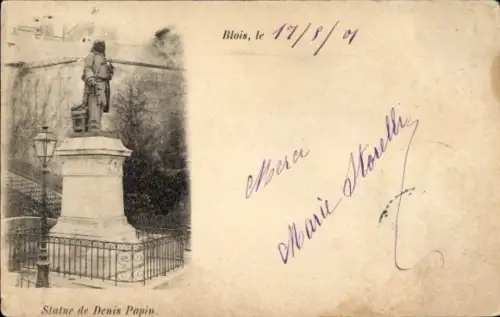 Blois, le 17/8/01
Merci
Marie
Statue de Denis Papin.